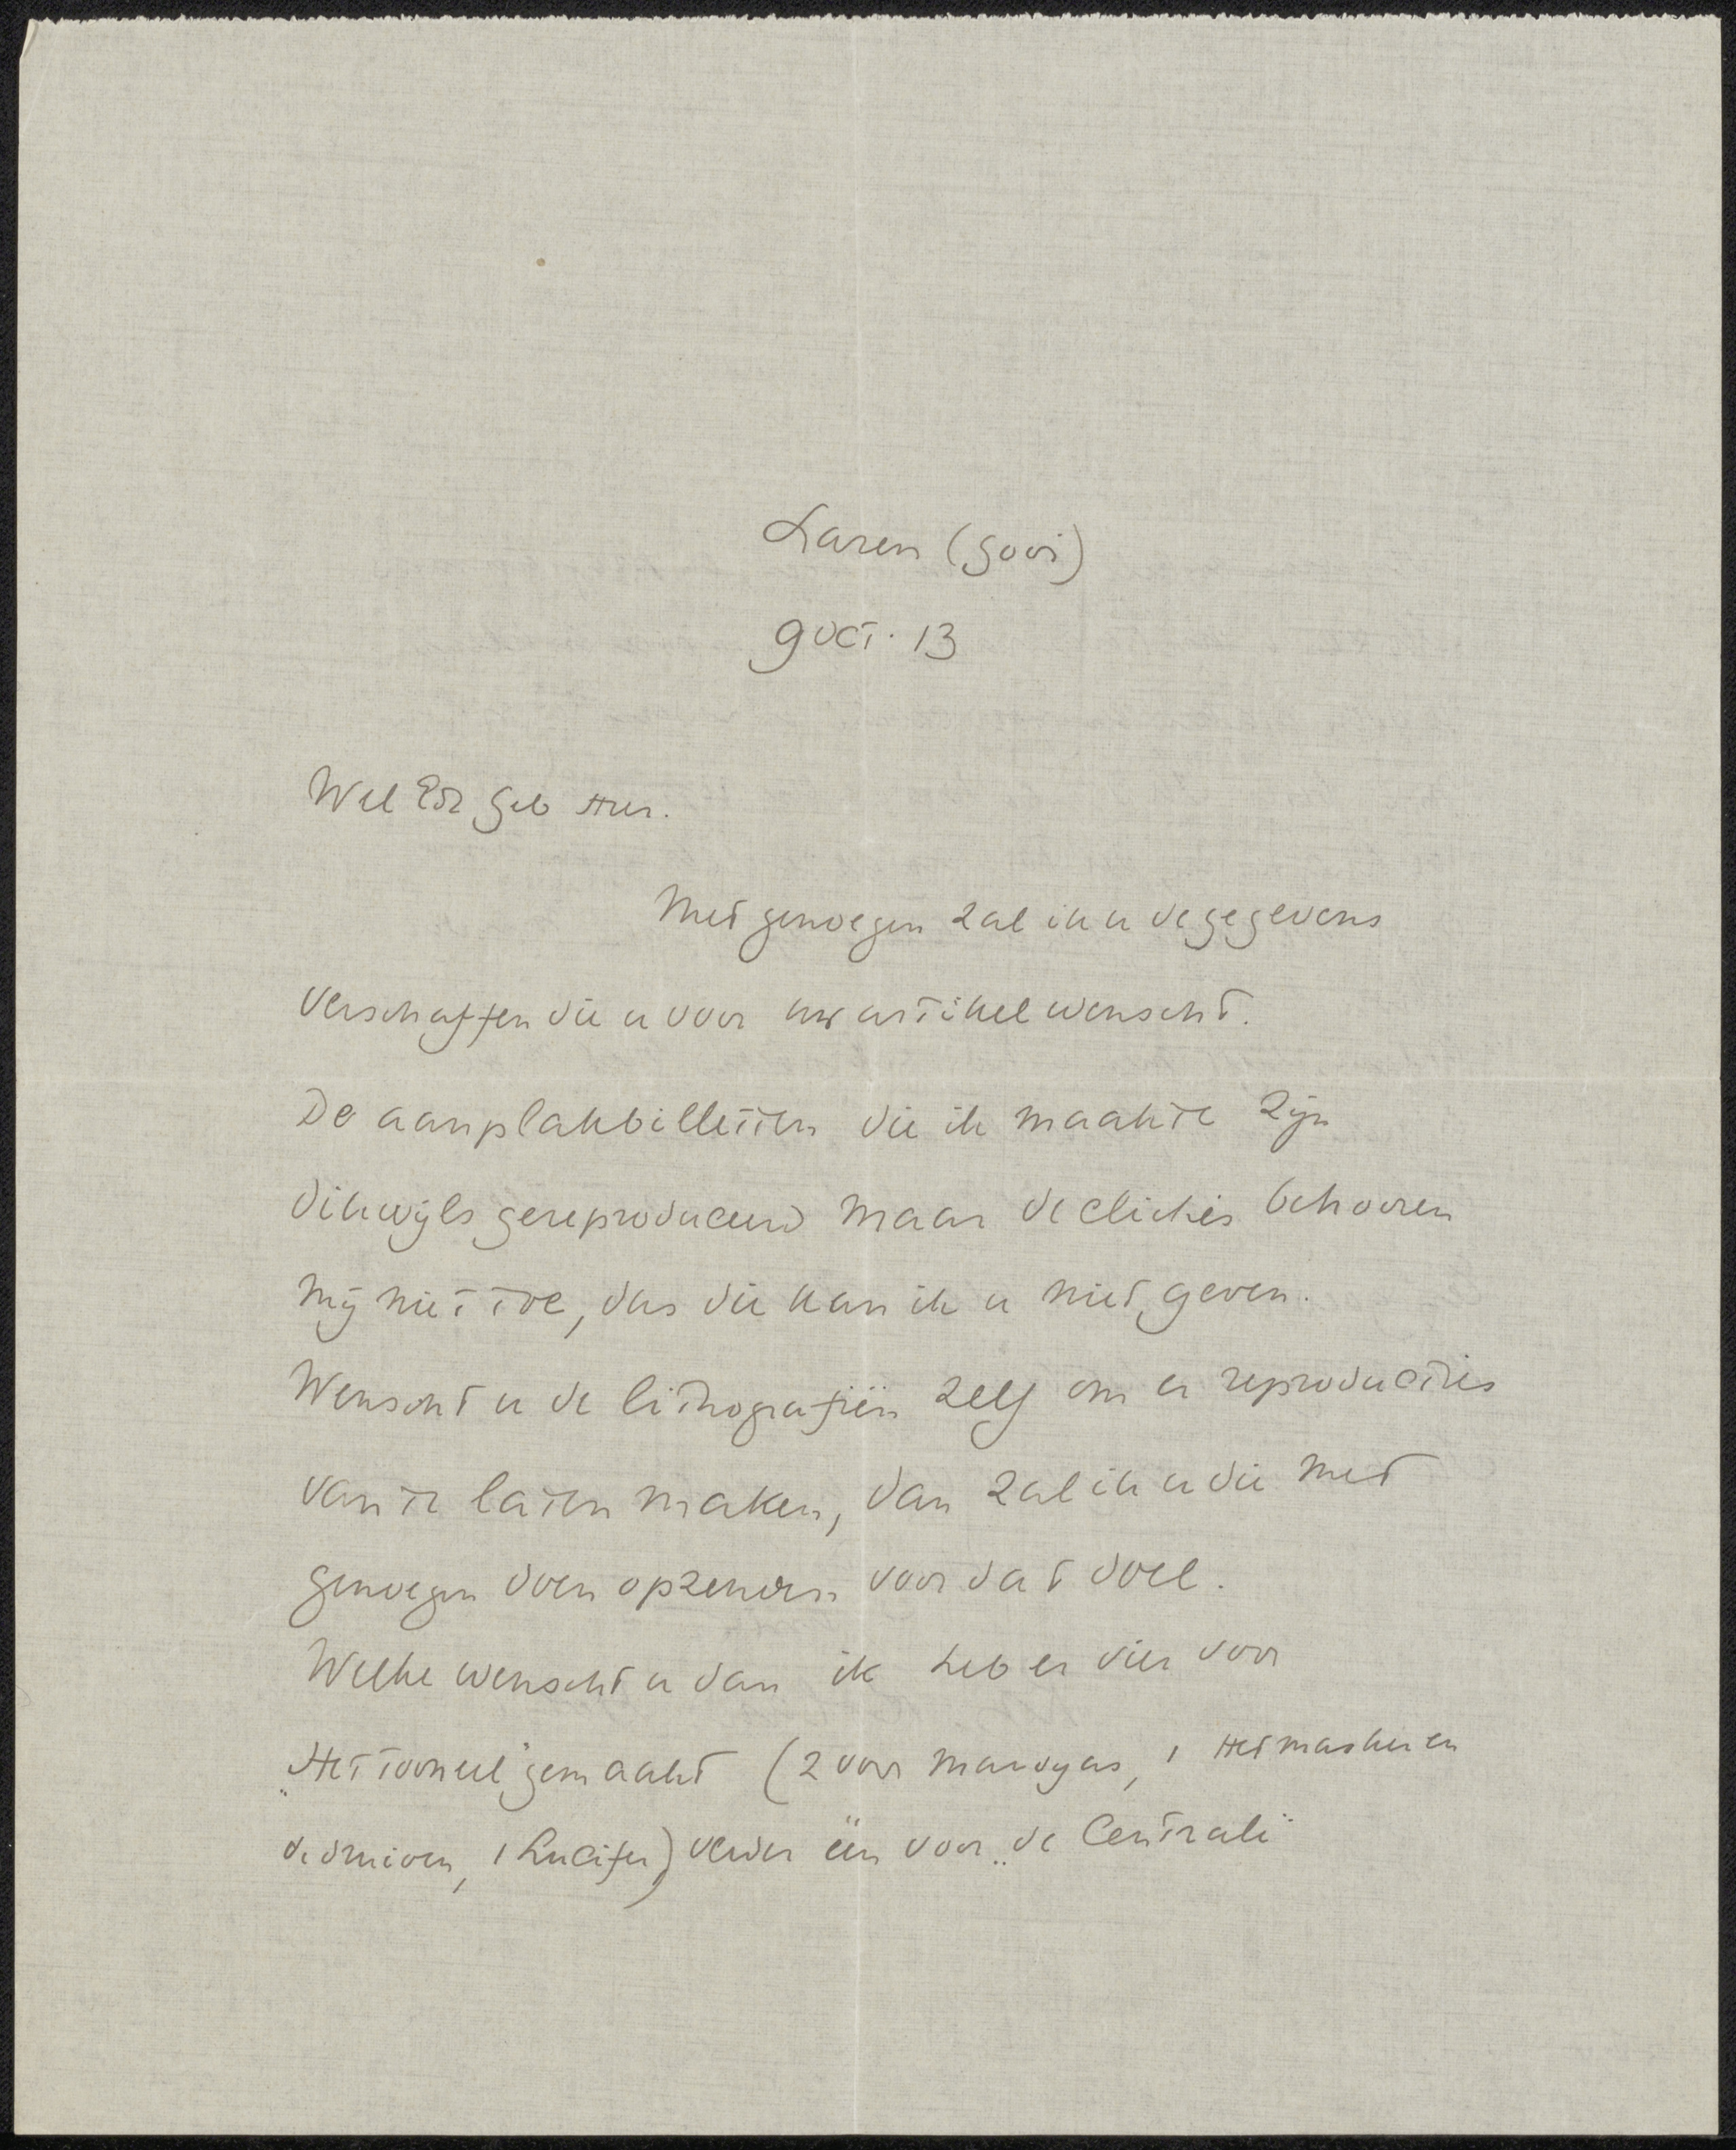 Laren (Gooi)
9 oct. 13
Wel Ed Geb Heer.
Met genoegen zal ik u de gegevens
verschaffen die u voor uw artikel wenscht.
De aanplakbilletten die ik maakte zijn
dikwijls gereproduceerd maar de clichés behooren
mij niet toe, dus die kan ik u niet geven.
Wenscht u de lithografiën zelf om er reproducties
van te laten maken, dan zal ik u die met
genoegen doen opzenden voor dat doel.
Welke wenscht u dan ik heb er vier voor
„Het Tooneel" gemaakt (2 voor Marsyas, 1 Het masker en
de druiven, 1 Lucifer) verder één voor „de Centrale"